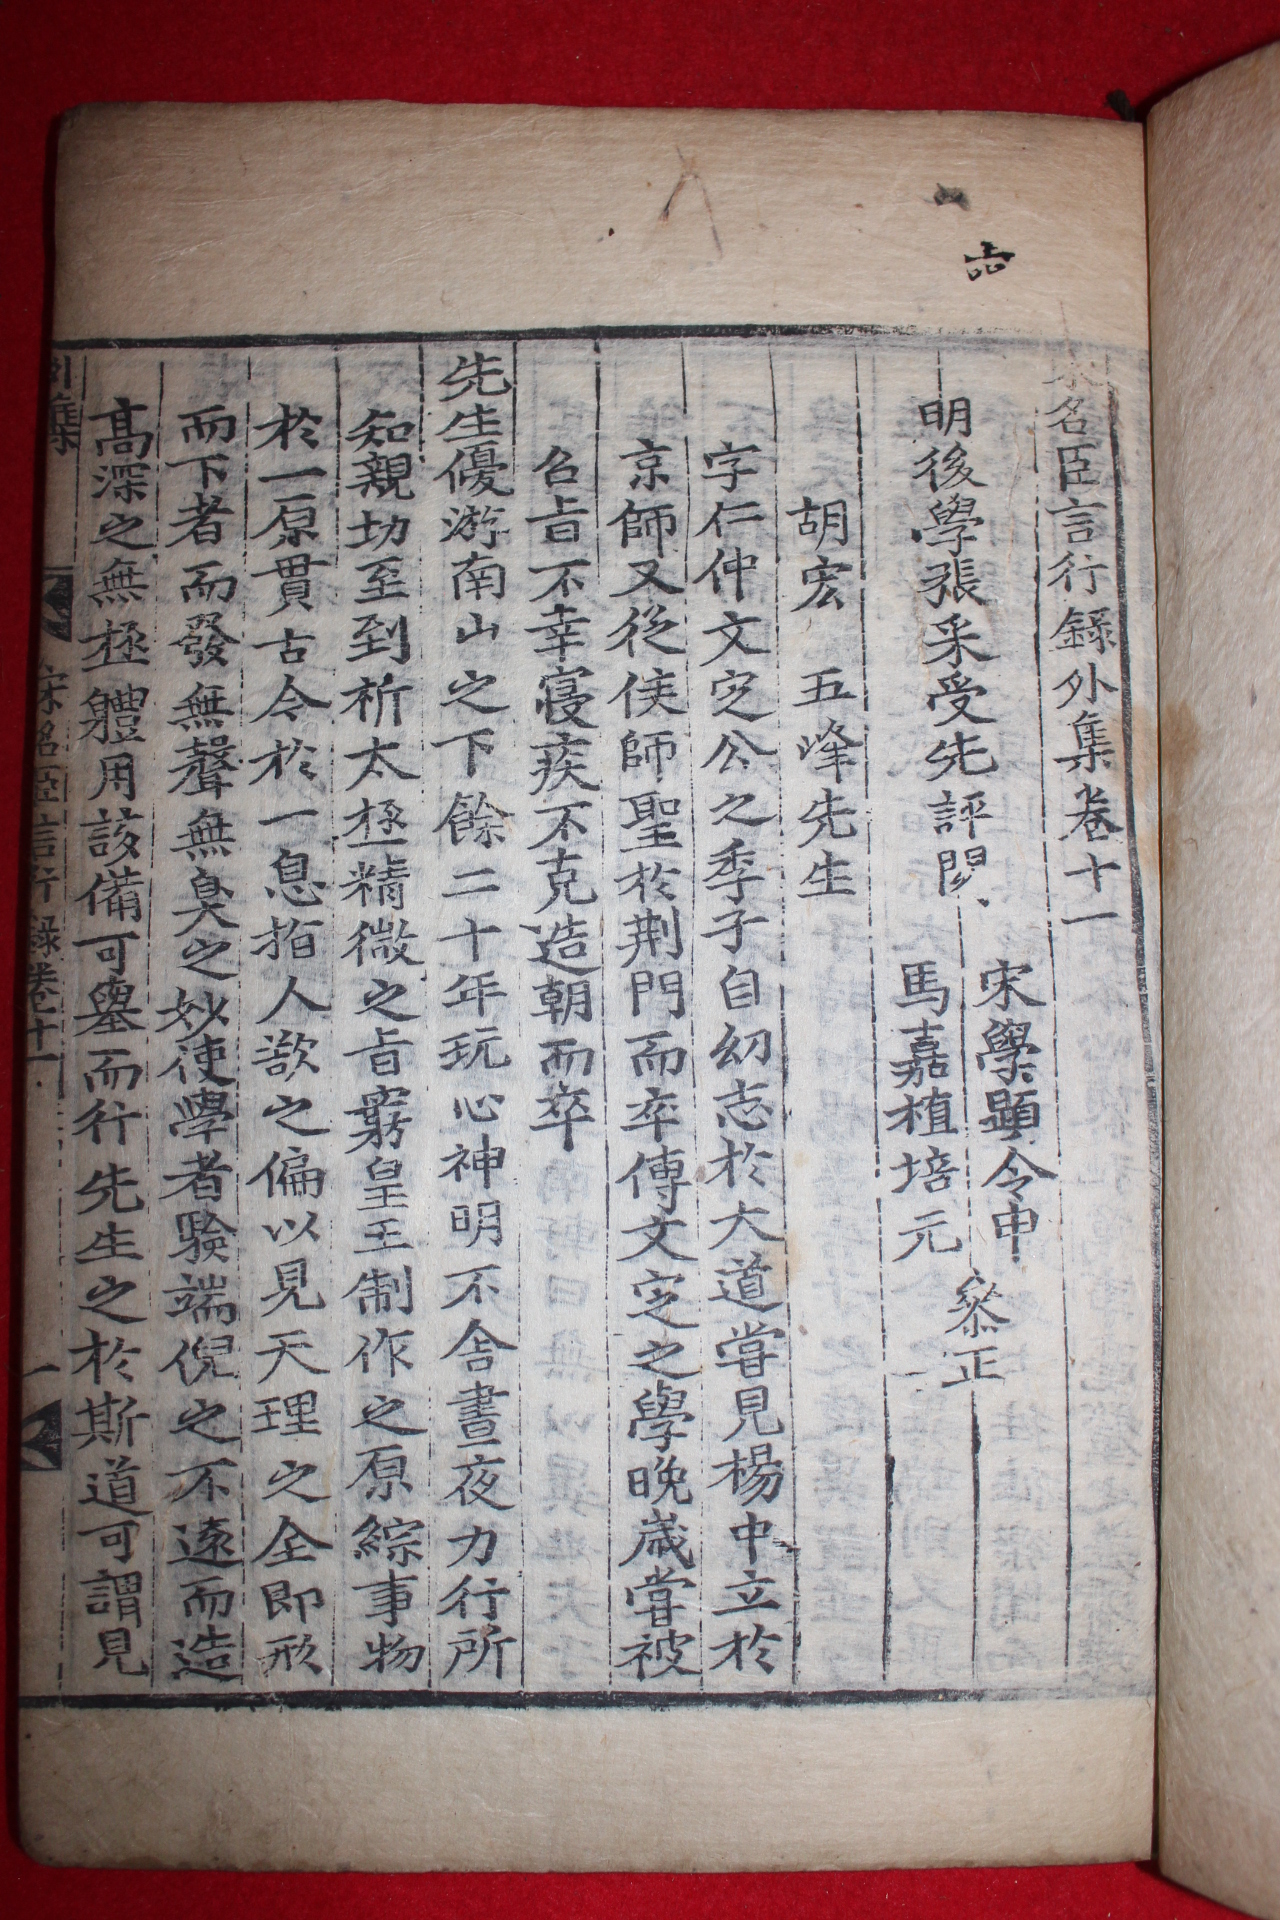 宋名臣言行録外集卷十一
明後學張采受先評閱
宋學顯令申
馬嘉植培元
叅正
胡宏 五峰先生
字仁仲文定公之季子自幼志於大道嘗見楊中立於
京師又從侯師聖於荆門而卒傳文定之學晚歲嘗被
召旨不幸寢疾不克造朝而卒
先生優游南山之下餘二十年玩心神明不舍晝夜力行所
知親切至到析太極精微之旨窮皇王制作之原綜事物
於一原貫古今於一息指人欲之偏以見天理之全即形
而下者而發無聲無臭之妙使學者驗端倪之不遠而造
高深之無極體用該備可舉而行先生之於斯道可謂見
外集 宋名臣言行録卷十一 一